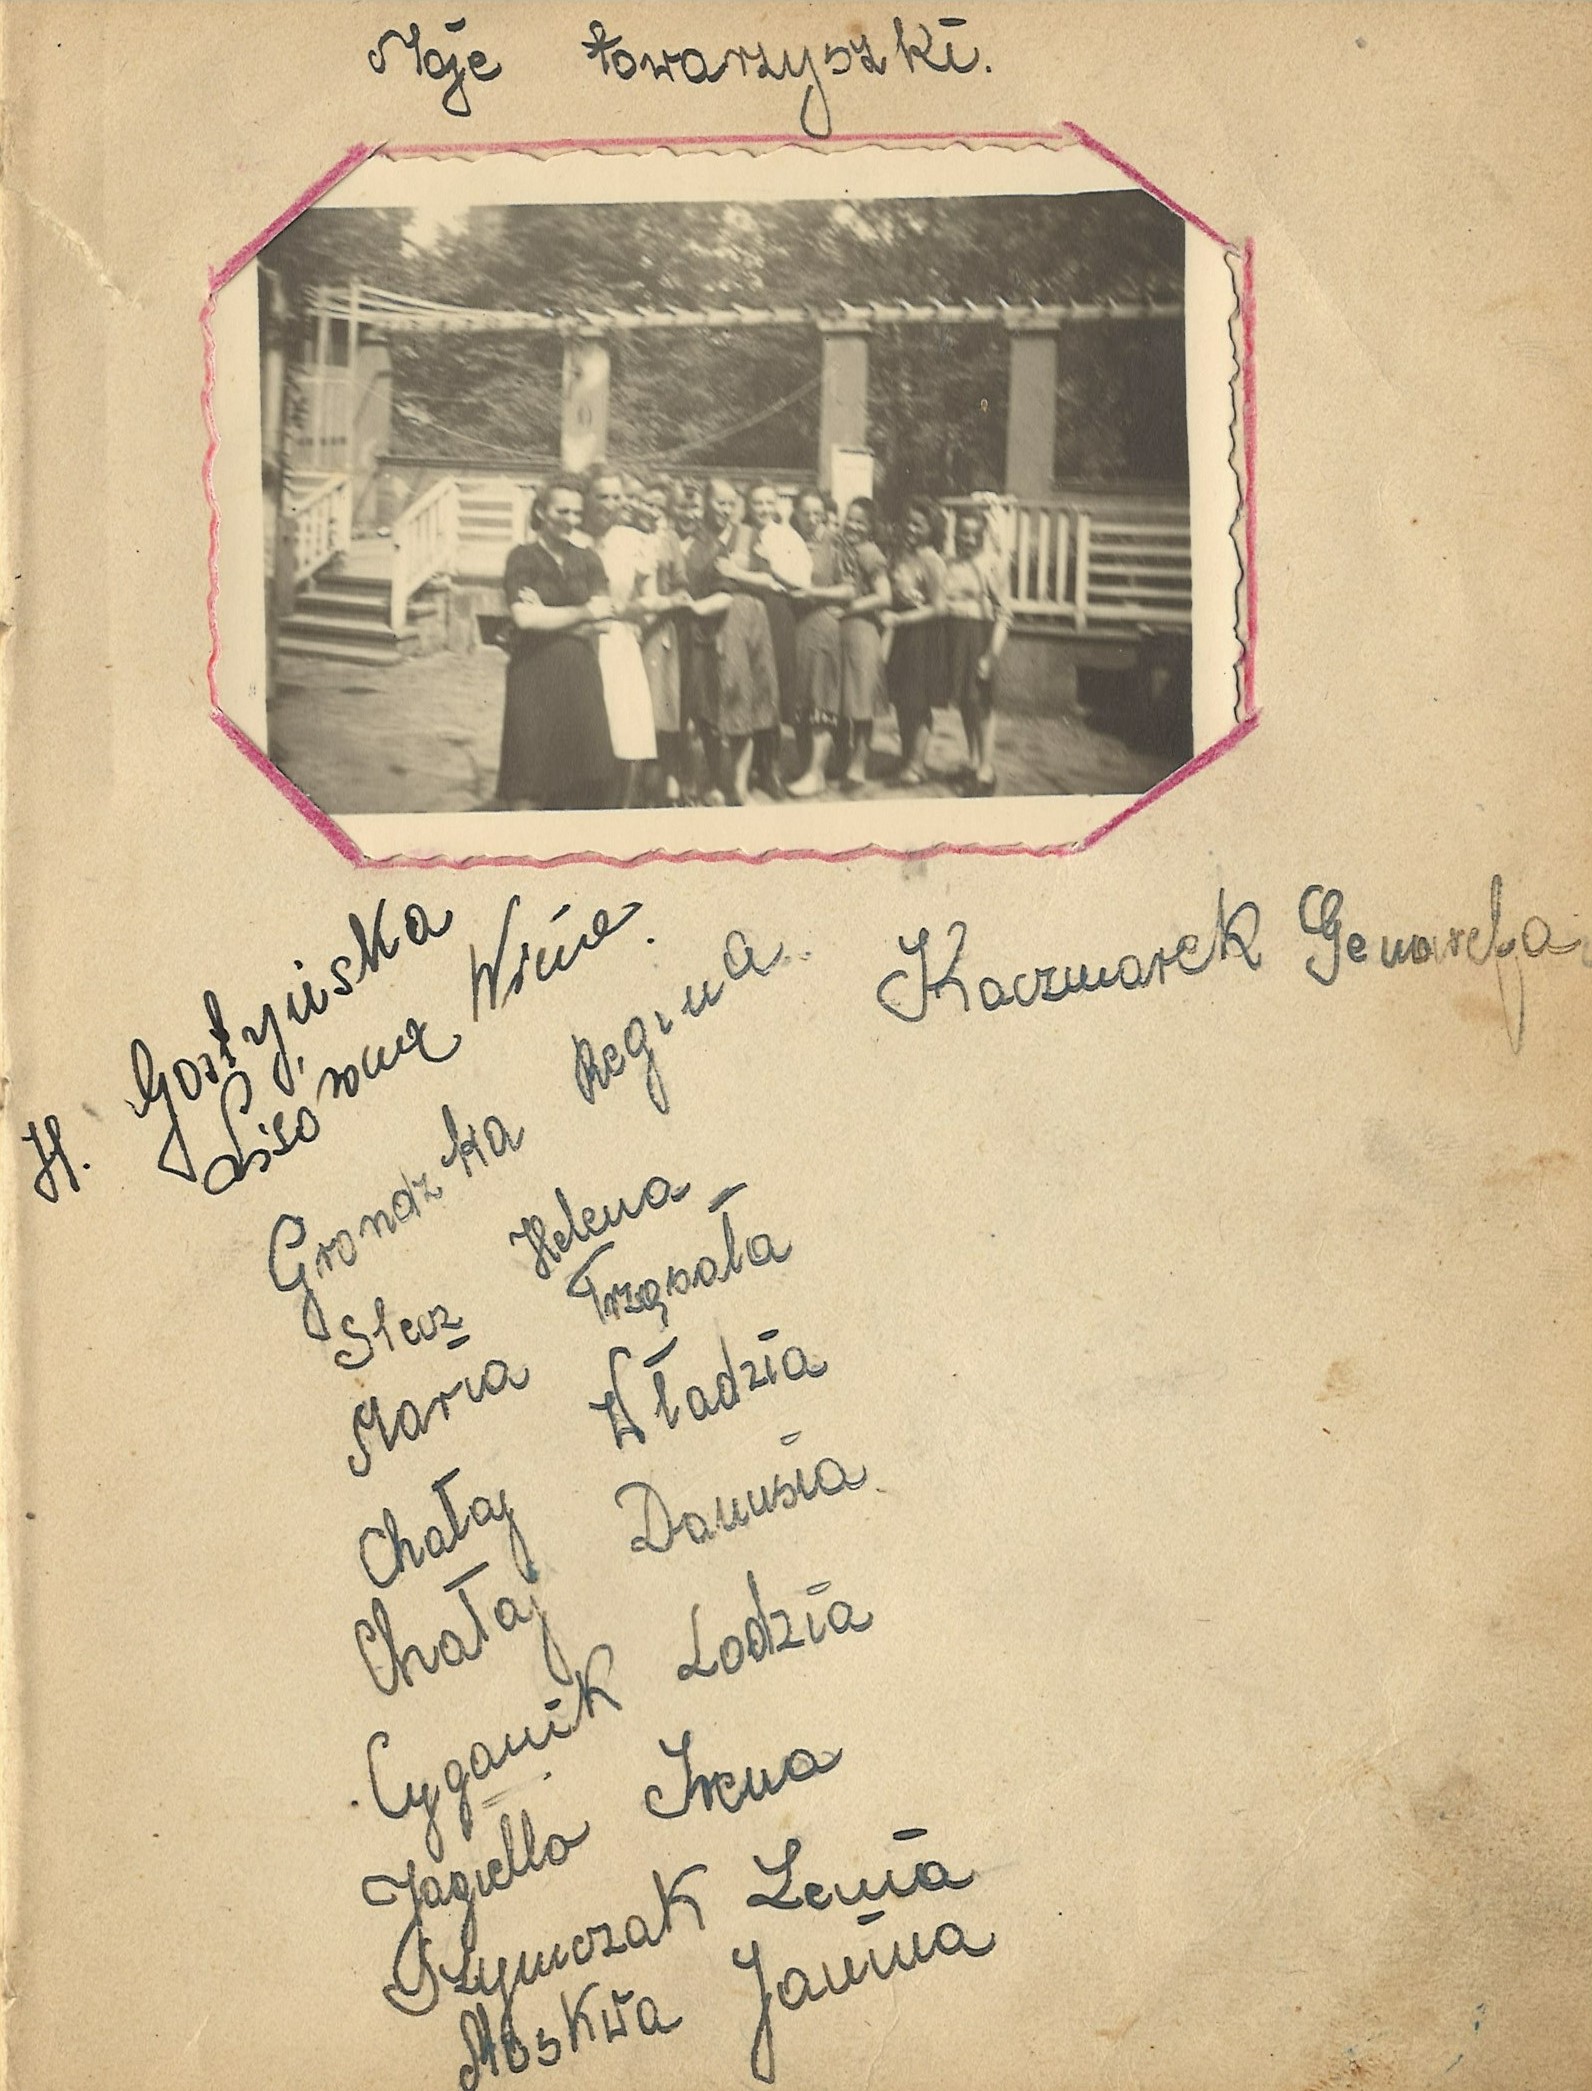 Moje towarzyszki.
H. Gostyńska
Lisowna
Grondzka Regina
Kaczmarek Genowefa
Slecz Helena
Maria Trząsała
Chałaj Władzia
Chałaj Danusia
Cyganik Lodzia
Jagiełło Irena
Szymczak Lenia
Moskwa Janina